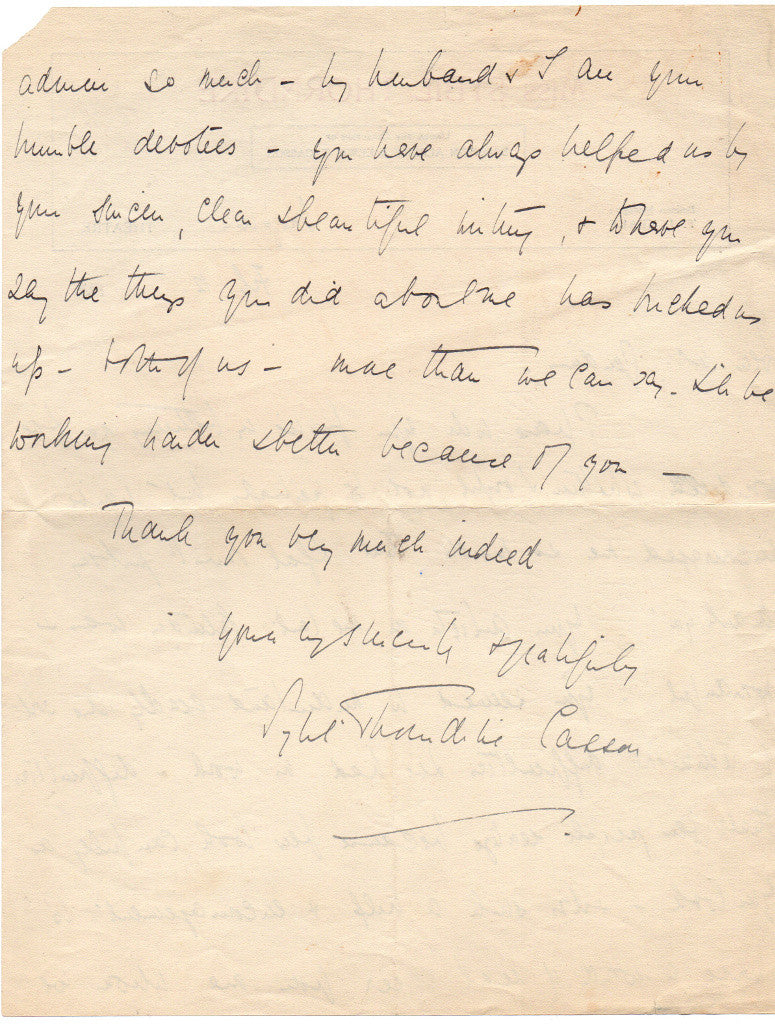 admire so much – my husband & I are your
humble devotees – you have always helped us by
your sincere, clear & beautiful writing, & to have you
say the things you did about me has bucked us
up – both of us – more than we can say. I'll be
working harder & better because of you –
Thank you very much indeed
Yours very sincerely & gratefully
Sybil Thorndike Casson